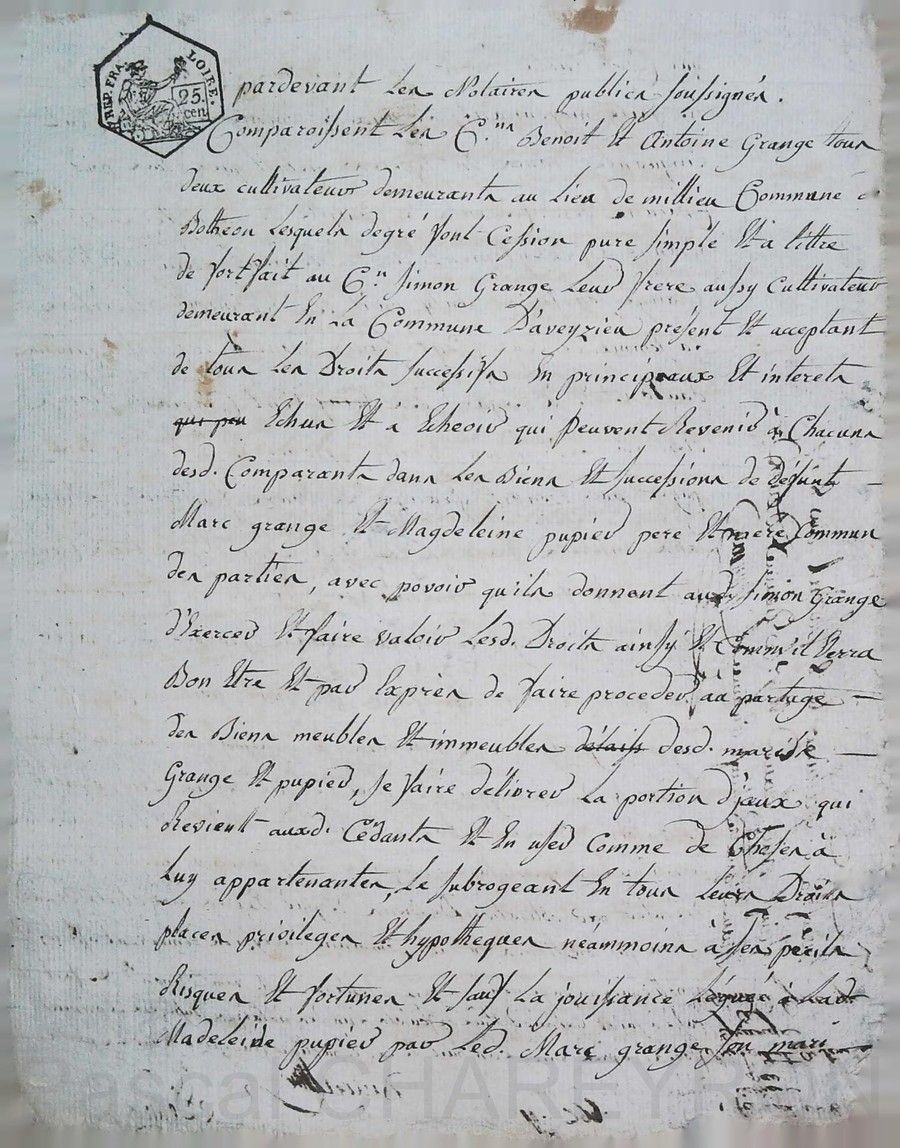 REP. FRA. LOIRE.
25.
cen.
pardevant Les Notaires publics soussignés.
Comparoissent Les C.ens Benoit Et Antoine Grange tous
deux cultivateurs demeurants au Lieu de millieu Commune
Botheon Lesquels degré font Cession pure simple Et a tittre
de fortfait au C.en Simon Grange Leur frere aussy Cultivateur
demeurant En La Commune D'aveyzieu présent Et acceptant
de tous Les Droits successifs En principeaux Et interets
qui peu Echus Et à Echeoir qui peuvent Revenir à Chacuns
desd. Comparants dans Les Biens Et successions de défunts
Marc grange Et Magdeleine pupier pere Et mere Commun
des parties, avec povoir qu'ils donnent aud. Simon Grange
d'Exercer Et faire valoir Lesd. Droits ainsy Et Comm'il Verra
Bon Etre Et par Exprès de faire proceder au partage
des Biens meubles Et immeubles desd. mariés
Grange Et pupier, se faire délivrer La portion d'jeux qui
Revient auxd. Cédants Et En user Comme de Choses à
Luy appartenantes, Le subrogeant En tous Leurs Droits
places privileges Et hypotheques néammoins à ses périls
Risques Et fortunes Et sauf La jouissance Léguée a Lad.
Madeleine pupier par Led. Marc grange son mari
Pascal CHAREYRON